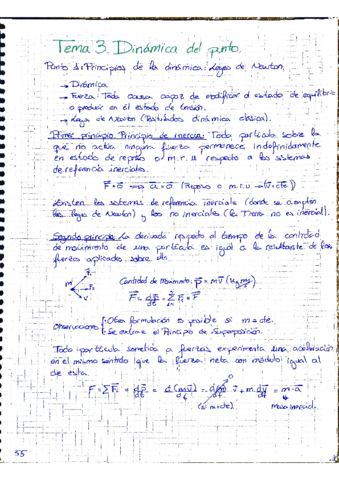 Tema 3. Dinámica del punto.
Punto 1: Principios de la dinámica: Leyes de Newton.
→ Dinámica.
→ Fuerza: Toda causa capaz de modificar el estado de equilibrio
o producir en él estado de tensión.
→ Leyes de Newton (Postulados dinámica clásica).
Primer principio. Principio de inercia: Toda partícula sobre la
que no actúa ninguna fuerza permanece indefinidamente
en estado de reposo ó m.r.u respecto a los sistemas
de referencia inerciales.
F⃗ = 0⃗ ⟹ a⃗ = 0⃗ (Reposo o m.r.u → v⃗ = cte)
Existen los sistemas de referencia inerciales (donde se cumplen
las leyes de Newton) y los no inerciales (la Tierra no es inercial).
Segundo principio: La derivada respecto al tiempo de la cantidad
de movimiento de una partícula es igual a la resultante de las
fuerzas aplicadas sobre ella.
Cantidad de movimiento: p⃗ = m v⃗
F⃗ = dp⃗/dt = Σ F⃗i = F⃗
Observaciones: Otra formulación es posible si m = cte.
Se extrae el Principio de Superposición.
Toda partícula sometida a fuerzas experimenta una aceleración
en el mismo sentido que la fuerza neta con módulo igual al
de ésta.
F = ΣF⃗i = dp⃗/dt = d(mv⃗)/dt = dm/dt · v⃗ + m · dv⃗/dt = m · a⃗
(si m = cte) Masa inercial.
55